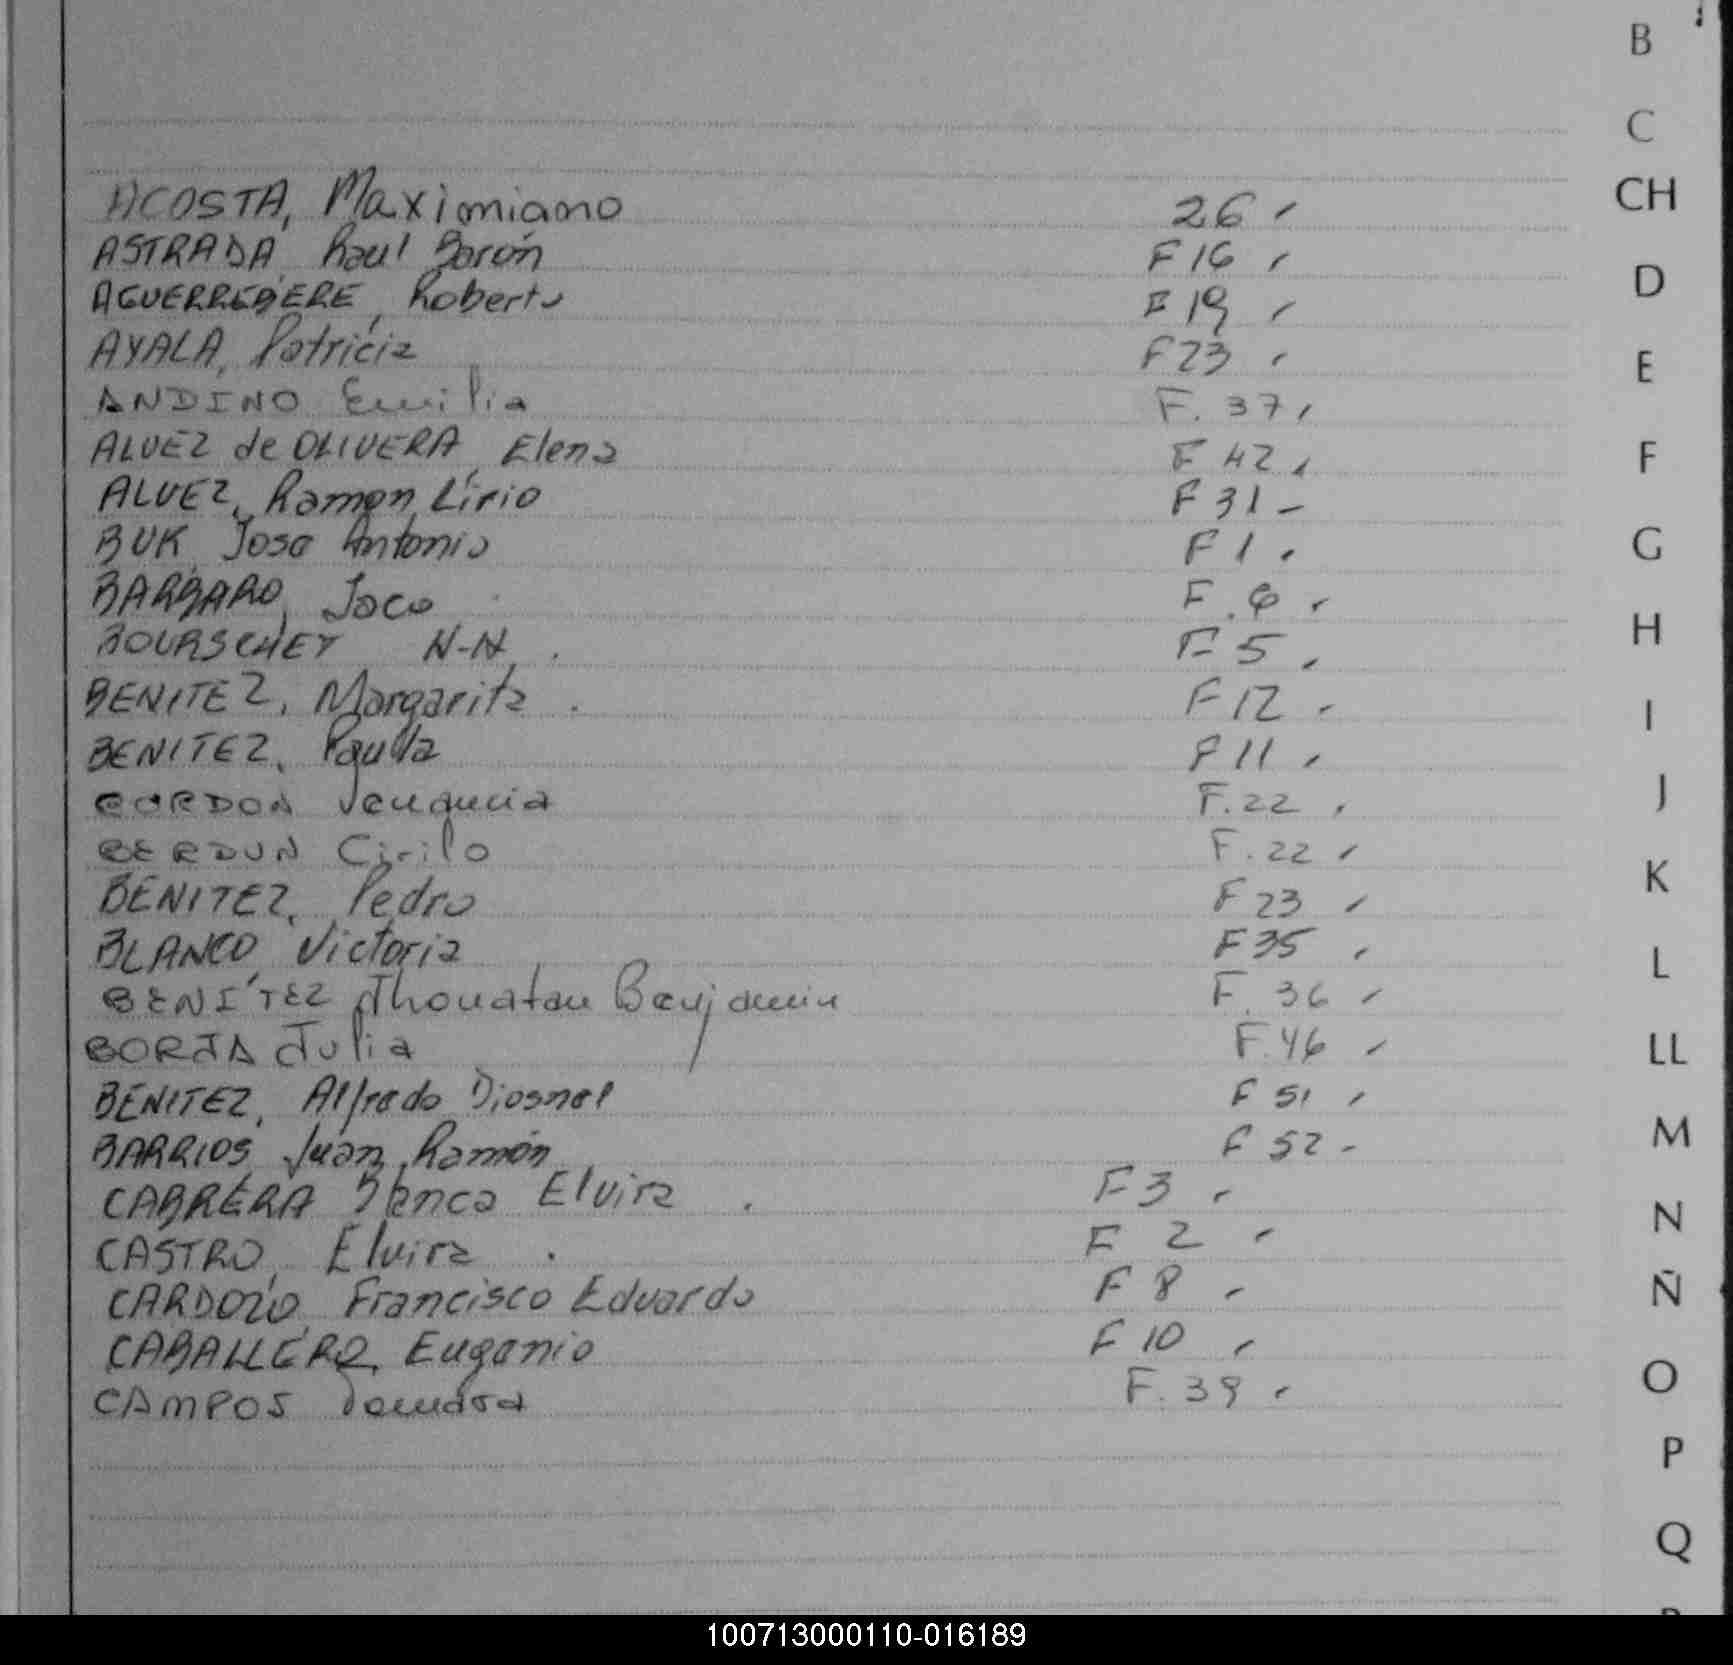 B
C
CH
D
E
F
G
H
I
J
K
L
LL
M
N
Ñ
O
P
Q
ACOSTA, Maximiano 26
ASTRADA, Raul Barón F 16
AGUERREBERE, Roberto F 19
AYALA, Patricia F 23
ANDINO Emilia F. 37
ALVEZ de OLIVERA, Elena F 42
ALVEZ, Ramon Lirio F 31
BUK, Jose Antonio F 1
BARBARO, Joco F. 6
BOURSCHEY N-N F 5
BENITEZ, Margarita F 12
BENITEZ, Paula F 11
F. 22
BERDUN Cirilo F. 22
BENITEZ, Pedro F 23
BLANCO, Victoria F 35
BENÍTEZ Jhonatan Benjamin F. 36
BORJA Julia F. 46
BENITEZ, Alfredo Diosnel F 51
BARRIOS Juan Ramón F 52
CABRERA Blanca Elvira F 3
CASTRO, Elvira F 2
CARDOZO, Francisco Eduardo F 8
CABALLERO, Eugenio F 10
CAMPOS Tamara F. 39
100713000110-016189